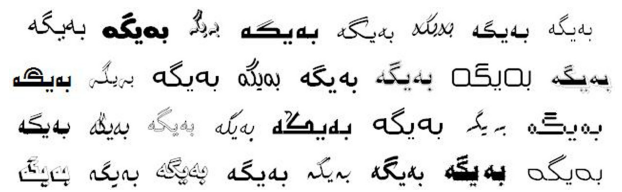 بەیگە بەیگە بەیگە بەیگە بەیگە بەیگە بەیگە بەیگە
بەیگە بەیگە بەیگە بەیگە بەیگە بەیگە بەیگە بەیگە
بەیگە بەیگە بەیگە بەیگە بەیگە بەیگە بەیگە بەیگە
بەیگە بەیگە بەیگە بەیگە بەیگە بەیگە بەیگە بەیگە